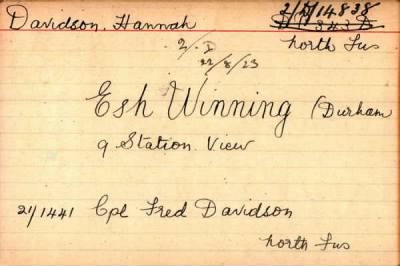 Davidson, Hannah
2/N/14838
North Fus
2/- I
22/8/23
Esh Winning (Durham
9 Station View
21/1441 Cpl Fred Davidson
North Fus